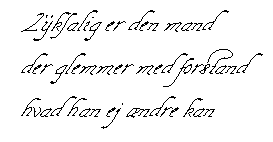 Lÿksalig er den mand
der glemmer med forstand
hvad han ej ændre kan